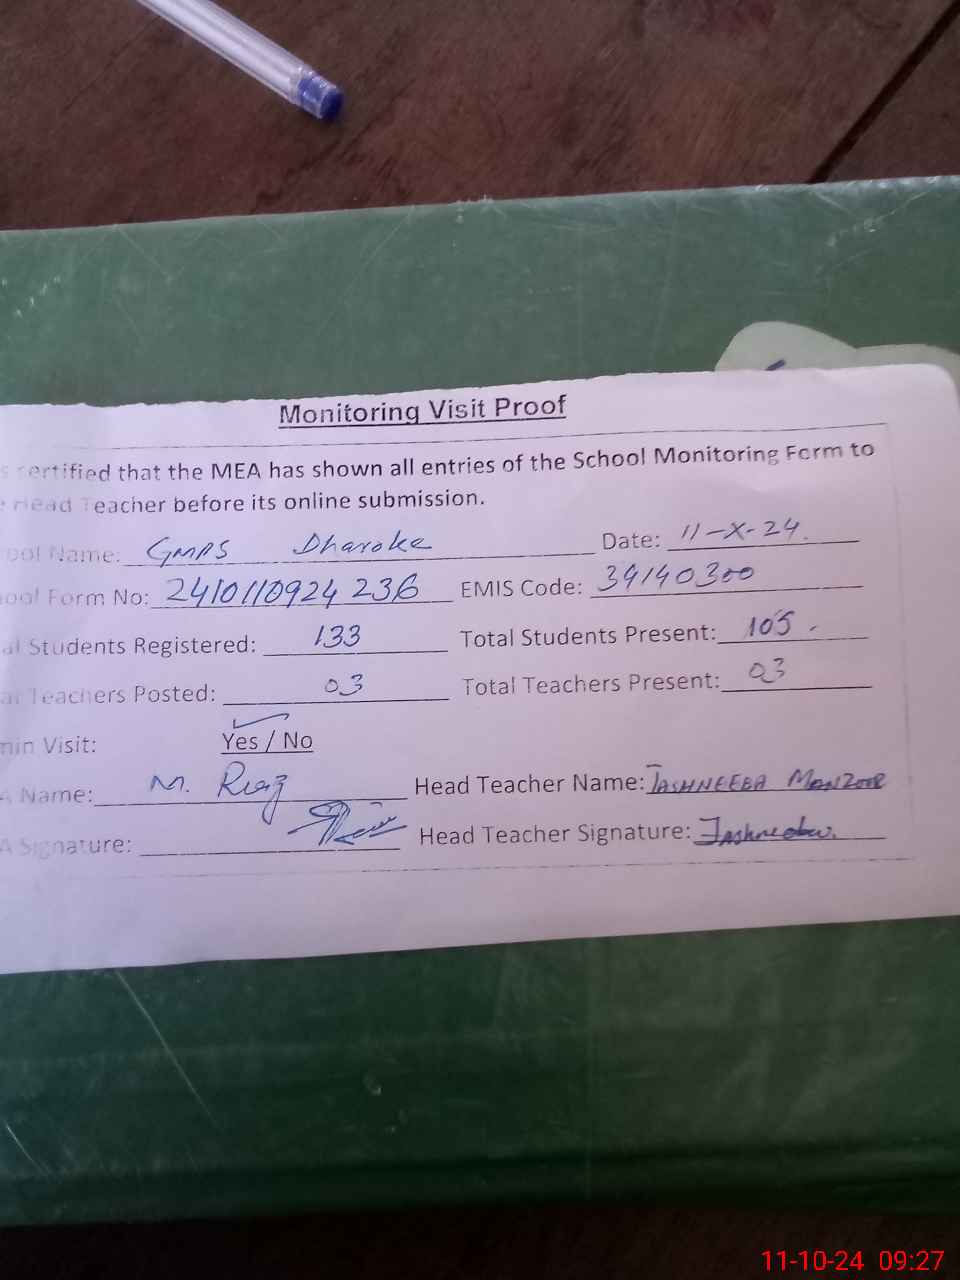 Monitoring Visit Proof
s certified that the MEA has shown all entries of the School Monitoring Form to
e Head Teacher before its online submission.
ool Name: GMPS Dharoke Date: 11-X-24.
ool Form No: 2410110924236 EMIS Code: 34140300
al Students Registered: 133 Total Students Present: 105.
al Teachers Posted: 03 Total Teachers Present: 03
min Visit: Yes / No
A Name: M. Riaz Head Teacher Name: TASHNEEBA MANZOOR
A Signature: Head Teacher Signature: Tashneeba.
11-10-24 09:27